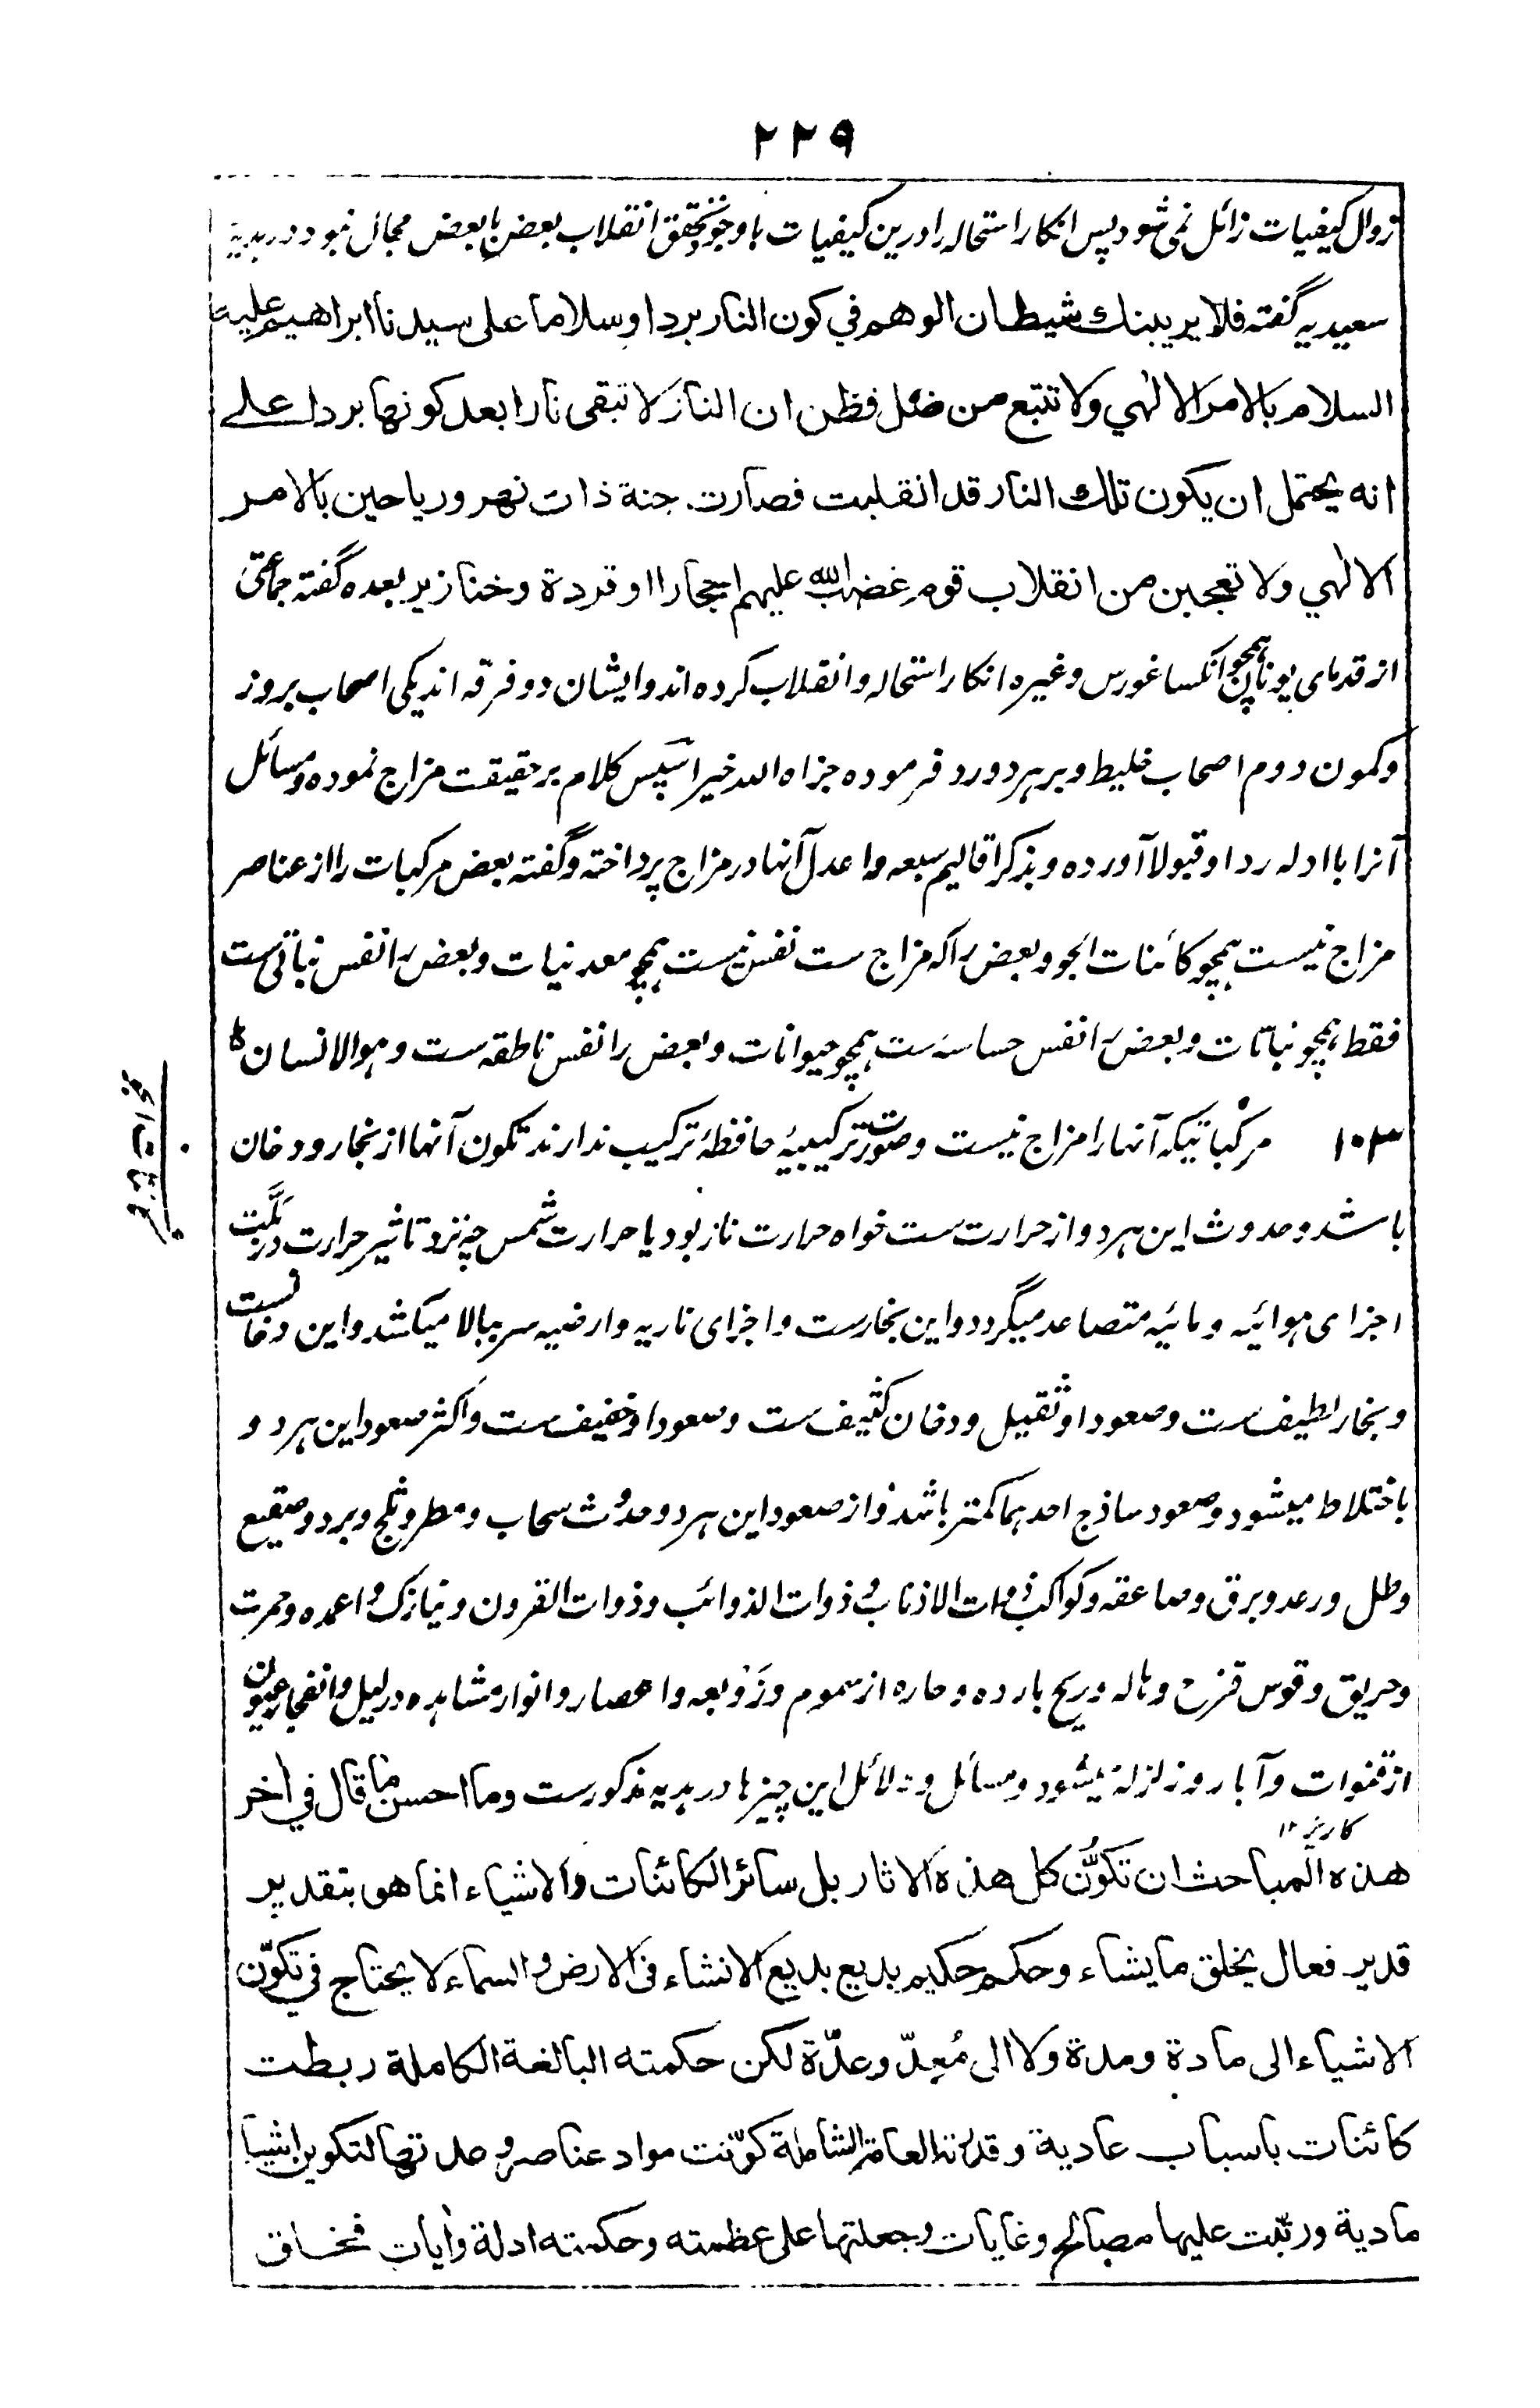 ۲۲۹
زوال کیفیات زائل نمی شود پس انکار استحاله را درین کیفیات با وجود تحقق انقلاب بعض با بعض مجال نبود در هدیه
سعیدیه گفته فلا یریبنك شیطان الوهم في کون النار بردا وسلاما علی سیدنا ابراهیم علیه
السلام بالامر الالٰهي ولا تتبع من ضل فظن ان النار لا تبقی نارا بعد کونها بردا علے
انه یحتمل ان یکون تلك النار قد انقلبت فصارت جنة ذات نهر وریاحین بالامر
الالٰهي ولا تعجبن من انقلاب قوم غضب الله علیهم احجارا او قردة وخنازیر بعده گفته جماعتی
از قدمای یونان همچو انکساغورس وغیره انکار استحاله وانقلاب کرده اند وایشان دو فرقه اند یکی اصحاب بروز
وکمون دوم اصحاب خلیط وبر هر دو رد فرموده جزاه الله خیرا سپس کلام بر حقیقت مزاج نموده ومسائل
آنرا با ادله ردا وقبولا آورده وبذکر اقالیم سبعه واعدل آنها در مزاج پرداخته وگفته بعض مرکبات را از عناصر
مزاج نیست همچو کائنات الجو وبعض را که مزاج ست نفس نیست همچو معدنیات وبعض را نفس نباتی ست
فقط همچو نباتات وبعض را نفس حساسه ست همچو حیوانات وبعض را نفس ناطقه ست وهو الانسان
۱۰۳ مرکباتیکه آنها را مزاج نیست وصورت ترکیبیهٔ حافظهٔ ترکیب ندارند تکون آنها از بخار ودخان
باشد وحدوث این هر دو از حرارت ست خواه حرارت نار بود یا حرارت شمس چه نزد تاثیر حرارت در
اجزای هوائیه ومائیه متصاعد میگردد واین بخارست واجزای ناریه وارضیه سر ببالا میکشد واین دخانست
وبخار لطیف ست وصعود او ثقیل ودخان کثیف ست وصعود او خفیف ست واکثر صعود این هر دو
باختلاط میشود وصعود ساذج احدهما کمتر باشد واز صعود این هر دو حدوث سحاب ومطر وثلج وبرد وصقیع
وطل ورعد وبرق وصاعقه وکواکب ذوات الاذناب وذوات الذوائب وذوات القرون ونیازک واعمده وحمرت
وحریق وقوس قزح وهاله وریح بارده وحاره از سموم وزوبعه واعصار وانوار مشاهده در لیل وانفجار عیون
از قنوات وآبار وزلزله میشود ومسائل ودلائل این چیزها در هدیه مذکورست وما احسن ما قال في اٰخر
کاریز ۱۲
هذه المباحث ان تکوّن کل هذه الاثار بل سائر الکائنات والاشیاء انما هو بتقدیر
قدیر فعال یخلق ما یشاء وحکم حکیم بدیع بدیع الانشاء فی الارض والسماء لا یحتاج في تکوّن
الاشیاء الی مادة ومدة ولا الی مُعِدّ وعدّة لکن حکمته البالغة الکاملة ربطت
کائنات باسباب عادیة وقدرته العامة الشاملة کوّنت مواد عناصر لتکوین اشیا
مادیة ورتّبت علیها مصالح وغایات وجعلتها علی عظمته وحکمته ادلة واٰیات فخلق